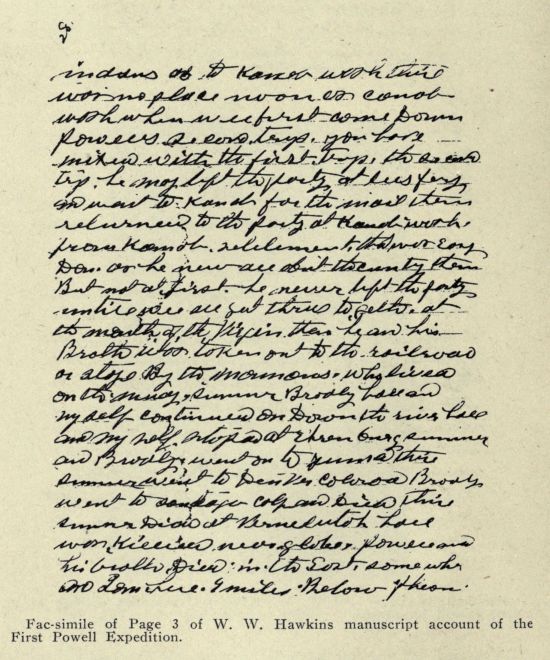 3
indians as to Kanab wosh thire
was no place noon as canab
wosh when wee first come Down
Powells second trip. you have
mixed with the first trip. the second
trip. he may left the party at lees fery
and went to Kanab for the mail then
returned to the party at Kanab wosh.
from Kanab. setelement that was Easy
Don as he new all about the cuntry then
But not at first he never left the party
untill wee all got thrue to gether. at
the mouth of the Virgin then he and his
Brother was token out to the railroad
or stage By the mormons. who lived
on the muddy. sumner Bradly hall and
my self continued on Down the river hall
and my self stoped at Ehrenberg sumner
and Bradly went on to yuma there
sumner went to Denver colorado Bradly
went to Cal and Died thire
sumner Died at Vernel utah hall
was Killed near globe. Powell and
his brother Died in the East some whe
and I am here. 9 miles Below
Fac-simile of Page 3 of W. W. Hawkins manuscript account of the
First Powell Expedition.